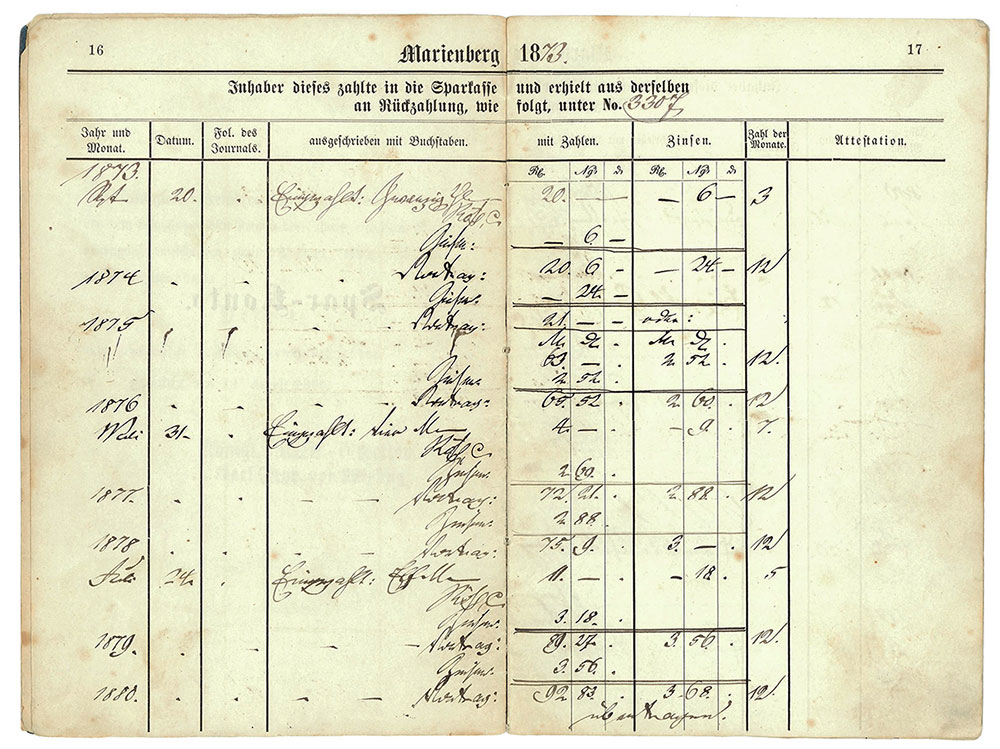 16 Marienberg 1873. 17
Inhaber dieses zahlte in die Sparkasse und erhielt aus derselben
an Rückzahlung, wie folgt, unter No. 3307
Jahr und Monat. Datum. Fol. des Journals. ausgeschrieben mit Buchstaben. mit Zahlen. Zinsen. Zahl der Monate. Attestation.
Rℓ. Ngr ₰ Rℓ. Ngr ₰
1873.
20. Eingezahlt: Zwanzig 20. — — — 6 — 3
Zinsen: — 6. —
1874 Vortrag: 20. 6 — — 24. — 12
Zinsen. — 24. —
1875 Vortrag: 21. — — oder:
M. ₰. M. ₰.
63. — . 2 52 . 12.
Zinsen. 2 52 .
1876 Vortrag: 65. 52 . 2 60. . 12
31. Eingezahlt: vier M 4. — . — 9. . 7.
Zinsen. 2 60.
1877. Vortrag: 72. 21. . 2 88. . 12
Zinsen. 2 88.
1878 Vortrag: 75. 9. . 3. — . 12
24. Eingezahlt: Elf M 11. — . — 18. . 5
Zinsen. 3. 18. .
1879. Vortrag: 89. 27. . 3. 56. . 12.
Zinsen. 3. 56. .
1880. Vortrag: 92 83. . 3. 68. . 12.
übertragen.